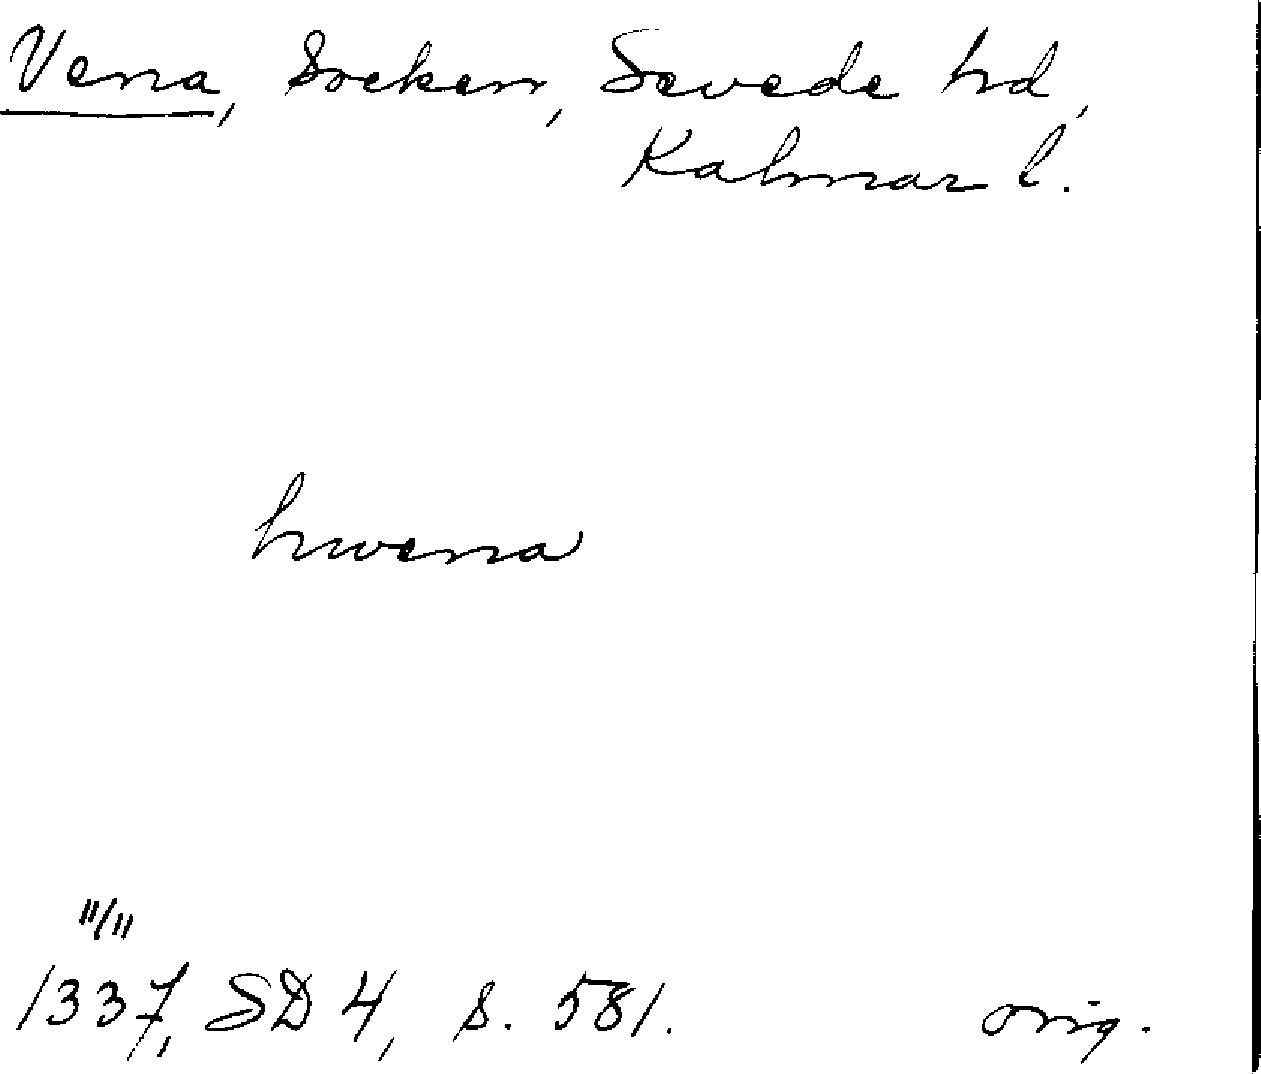 Vena, Socken, Sevede hd,
Kalmar l.
hwena
11/11
1337, SD 4, s. 581. orig.